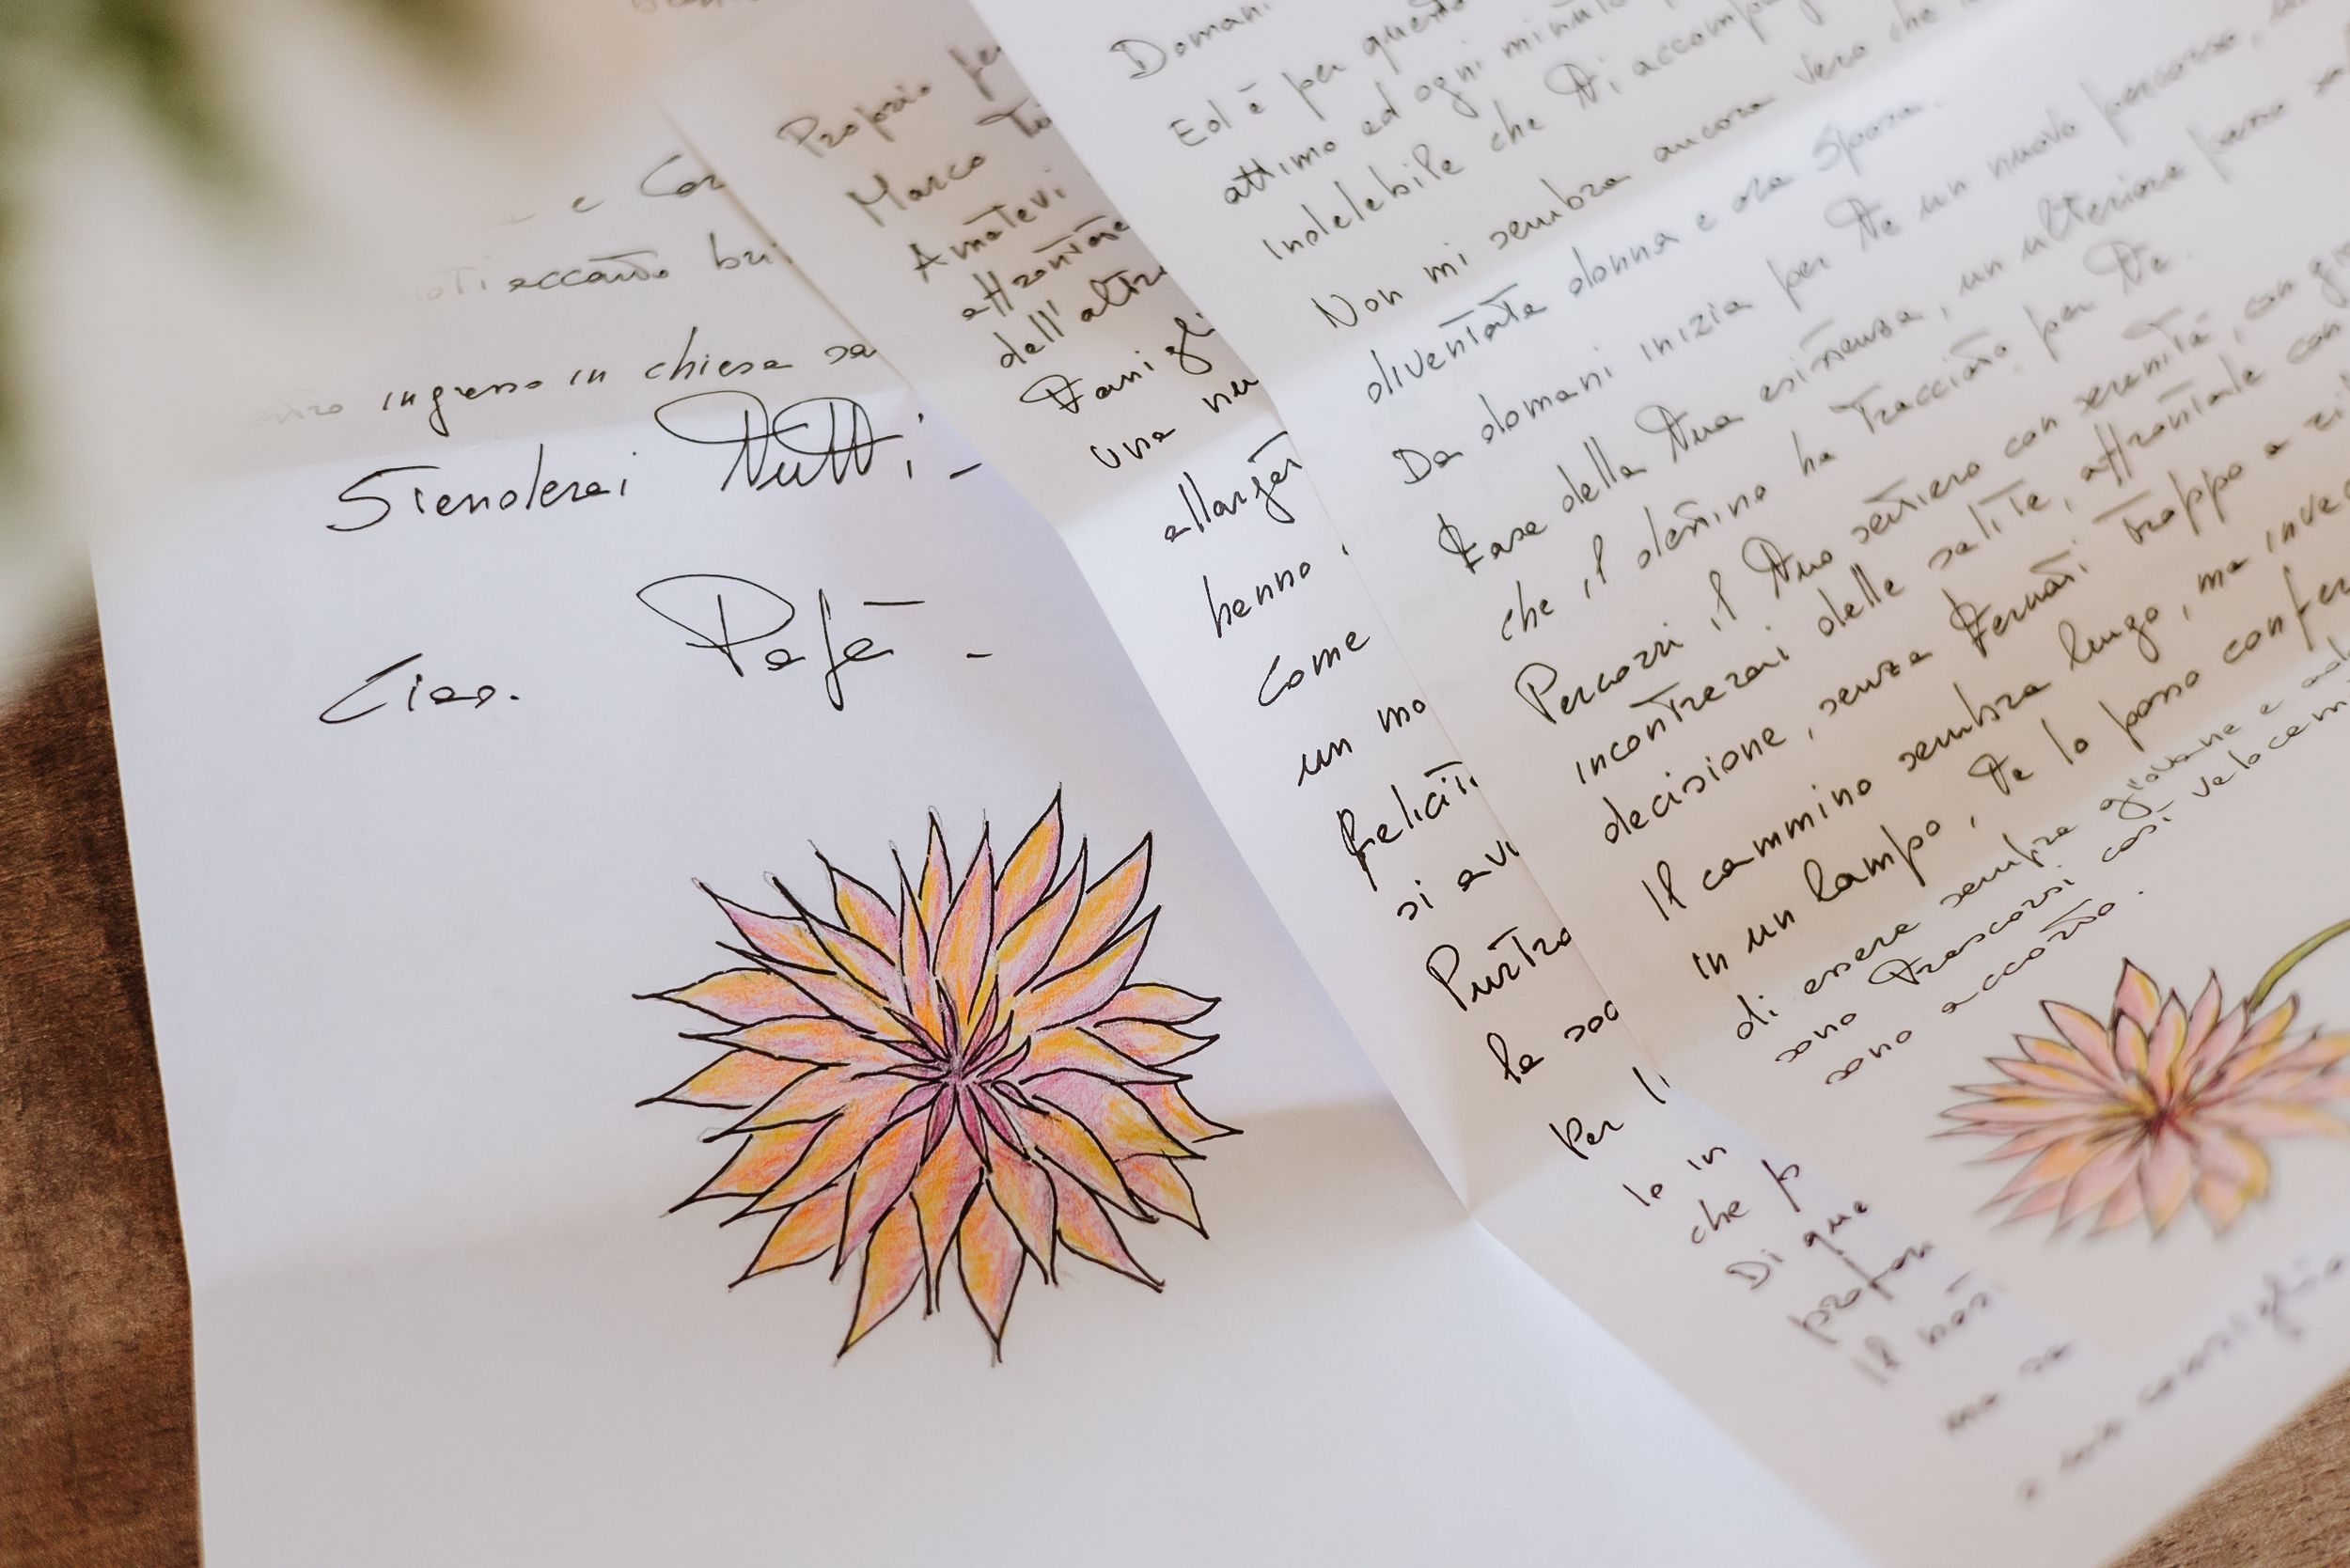 e Cor
accanto bri
ingresso in chiesa sa
Stenderai Tutti -
Ciao. Papà -
Proprio per
Marco Tu
Amatevi
affrontare
dell'altro
Famigli
una nu
allarga
hanno
Come
un mo
felicità
si avv
Purtro
la soc
Per l
la in
che p
Di que
profon
Il nos
ma
Domani
Ed è per questo
attimo ed ogni minuto
indelebile che Ti accompag
Non mi sembra ancora vero che
diventata donna e ora Sposa.
Da domani inizia per Te un nuovo percorso,
Fase della Tua esistenza, un ulteriore passo
che il destino ha Tracciato per Te.
Percorri il Tuo sentiero con serenità, con gi
incontrerai delle salite, affrontale con
decisione, senza Fermarti Troppo a ri
Il cammino sembra lungo, ma invec
in un lampo, Te lo posso confer
di essere sempre giovane e
sono Trascorsi così velocem
sono accorto.